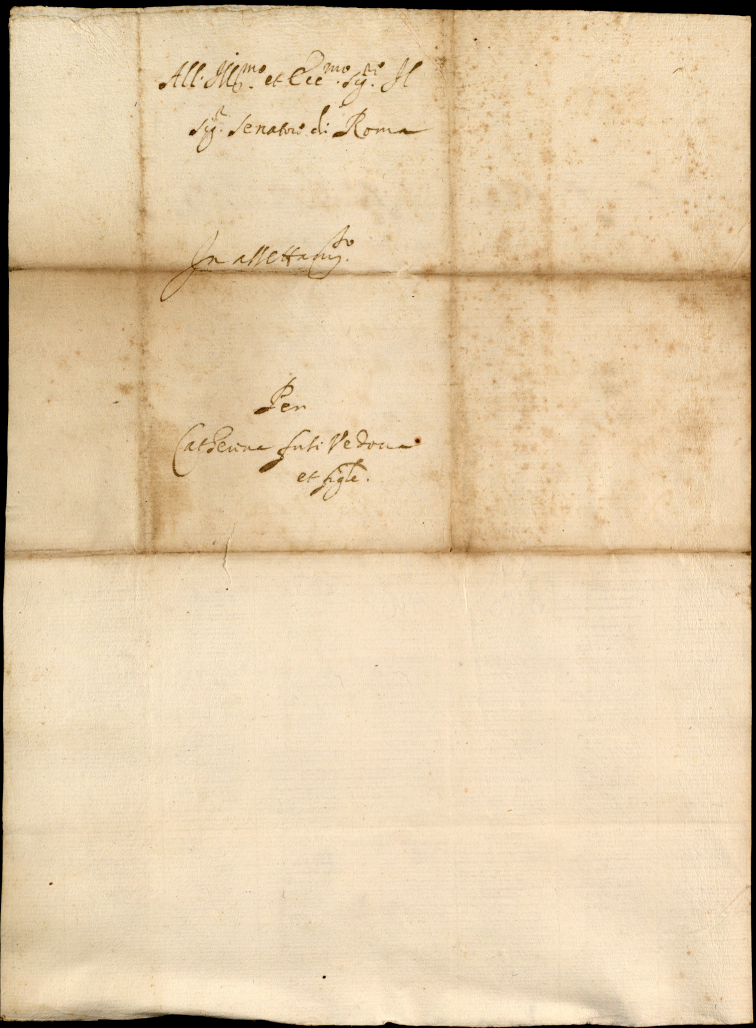 All. Ill.mo et Ecc.mo Sig.re Il
Sig.r Senatore di Roma
In
Per
Catherina Vedova
et figle.